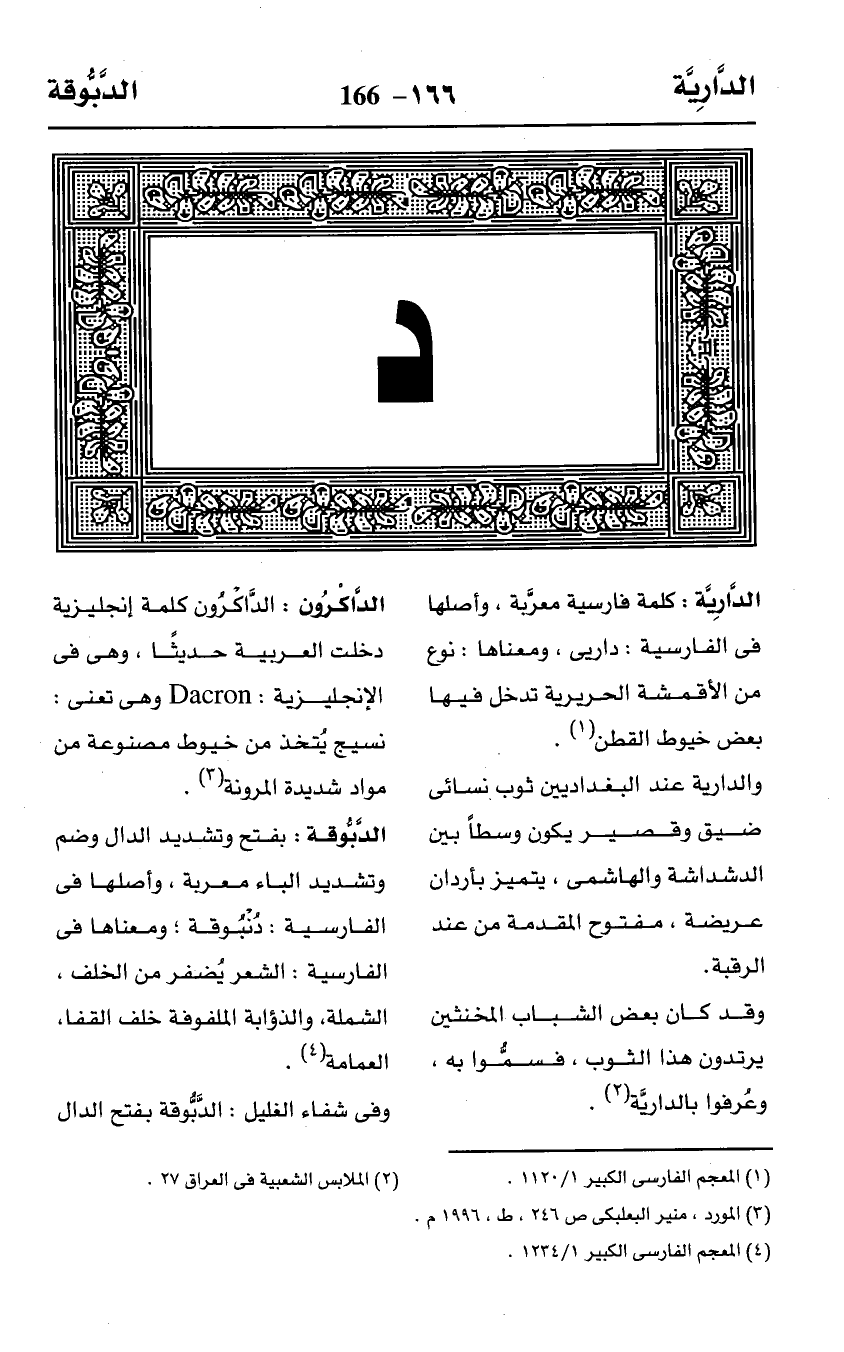 الدَّارِيَّة
١٦٦ – 166
الدَّبُّوقة
د
الدَّارِيَّة : كلمة فارسية معرَّبة ، وأصلها
فى الفارسية : داريى ، ومعناها : نوع
من الأقمشة الحريرية تدخل فيها
بعض خيوط القطن(١) .
والدارية عند البغداديين ثوب نسائى
ضيق وقصير يكون وسطاً بين
الدشداشة والهاشمى ، يتميز بأردان
عريضة ، مفتوح المقدمة من عند
الرقبة.
وقد كان بعض الشباب المخنثين
يرتدون هذا الثوب ، فسمُّوا به ،
وعُرفوا بالداريَّة(٢) .
الدَّاكْرُون : الدَّاكْرُون كلمة إنجليزية
دخلت العربية حديثًا ، وهى فى
الإنجليزية : Dacron وهى تعنى :
نسيج يُتخذ من خيوط مصنوعة من
مواد شديدة المرونة(٣) .
الدَّبُّوقة : بفتح وتشديد الدال وضم
وتشديد الباء معربة ، وأصلها فى
الفارسية : دُنْبُوقة ؛ ومعناها فى
الفارسية : الشعر يُضفر من الخلف ،
الشملة، والذؤابة الملفوفة خلف القفا،
العمامة(٤) .
وفى شفاء الغليل : الدَّبُّوقة بفتح الدال
(١) المعجم الفارسى الكبير ١/١١٢٠ .
(٢) الملابس الشعبية فى العراق ٢٧ .
(٣) المورد ، منير البعلبكى ص ٢٤٦ ، ط ، ١٩٩٦ م .
(٤) المعجم الفارسى الكبير ١/١٢٣٤ .